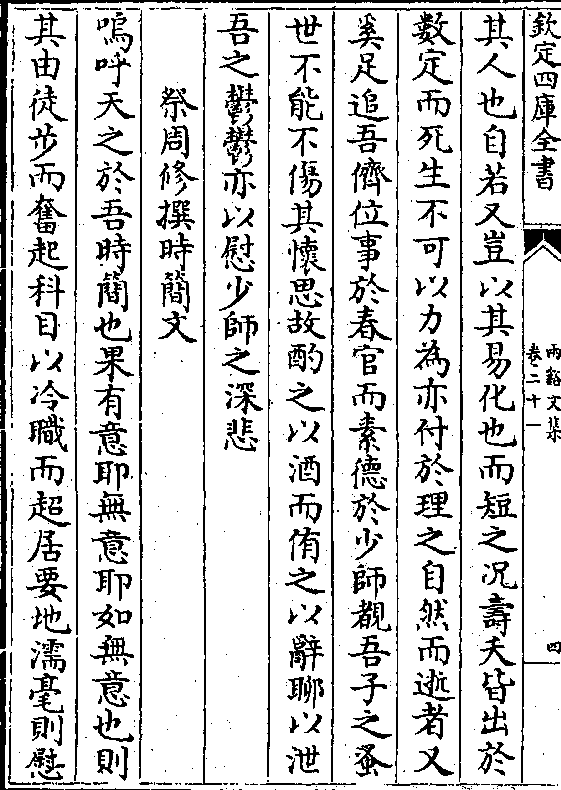 欽定四庫全書
兩谿文集
卷二十一
四
其人也自若又豈以其易化也而短之况壽夭皆出於
數定而死生不可以力為亦付於理之自然而逝者又
奚足追吾儕位事於春官而素德於少師覩吾子之蚤
世不能不傷其懷思故酌之以酒而侑之以辭聊以泄
吾之鬱鬱亦以慰少師之深悲
祭周修撰時簡文
嗚呼天之於吾時簡也果有意耶無意耶如無意也則
其由徒步而奮起科目以冷職而超居要地濡毫則慰